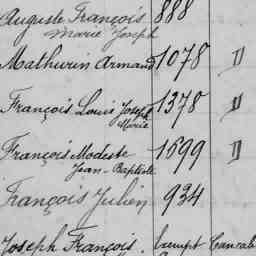 Auguste François 888
Marie Joseph
Mathurin Armand 1078 "
François Louis Joseph 1378 "
Marie
François Modeste 1699 "
Jean-Baptiste
François Julien 934
Joseph François. Exempt Cancale